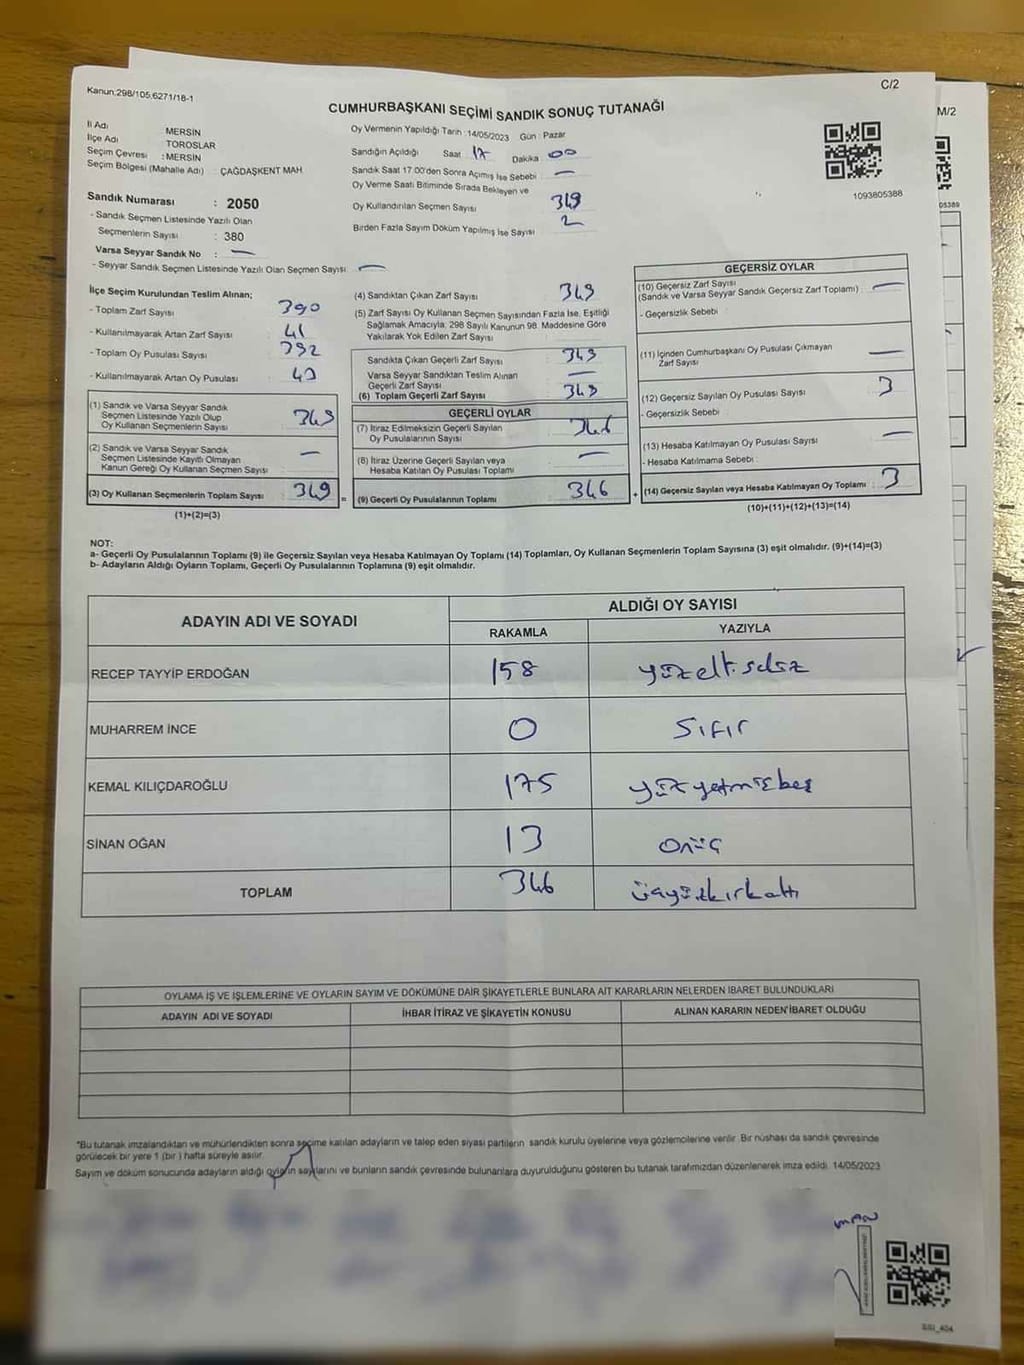 Kanun:298/105;6271/18-1
C/2
M/2
CUMHURBAŞKANI SEÇİMİ SANDIK SONUÇ TUTANAĞI
İl Adı MERSİN
İlçe Adı TOROSLAR
Seçim Çevresi : MERSİN
Seçim Bölgesi (Mahalle Adı) : ÇAĞDAŞKENT MAH
Oy Vermenin Yapıldığı Tarih : 14/05/2023 Gün : Pazar
Sandığın Açıldığı Saat 17 Dakika 00
Sandık Saat 17.00'den Sonra Açımış İse Sebebi : —
Oy Verme Saati Bitiminde Sırada Bekleyen ve
Oy Kullandırılan Seçmen Sayısı 349
Birden Fazla Sayım Döküm Yapılmış İse Sayısı 2
1093805388
05389
Sandık Numarası : 2050
- Sandık Seçmen Listesinde Yazılı Olan
Seçmenlerin Sayısı : 380
Varsa Seyyar Sandık No : —
- Seyyar Sandık Seçmen Listesinde Yazılı Olan Seçmen Sayısı : —
İlçe Seçim Kurulundan Teslim Alınan;
- Toplam Zarf Sayısı 390
- Kullanılmayarak Artan Zarf Sayısı 41
- Toplam Oy Pusulası Sayısı 392
- Kullanılmayarak Artan Oy Pusulası 43
(1) Sandık ve Varsa Seyyar Sandık
Seçmen Listesinde Yazılı Olup
Oy Kullanan Seçmenlerin Sayısı 349
(2) Sandık ve Varsa Seyyar Sandık
Seçmen Listesinde Kayıtlı Olmayan
Kanun Gereği Oy Kullanan Seçmen Sayısı —
(3) Oy Kullanan Seçmenlerin Toplam Sayısı 349 =
(1)+(2)=(3)
(4) Sandıktan Çıkan Zarf Sayısı 349
(5) Zarf Sayısı Oy Kullanan Seçmen Sayısından Fazla İse, Eşitliği
Sağlamak Amacıyla; 298 Sayılı Kanunun 98. Maddesine Göre
Yakılarak Yok Edilen Zarf Sayısı
Sandıkta Çıkan Geçerli Zarf Sayısı 349
Varsa Seyyar Sandıktan Teslim Alınan
Geçerli Zarf Sayısı —
(6) Toplam Geçerli Zarf Sayısı 349
GEÇERLİ OYLAR
(7) İtiraz Edilmeksizin Geçerli Sayılan
Oy Pusulalarının Sayısı 346
(8) İtiraz Üzerine Geçerli Sayılan veya
Hesaba Katılan Oy Pusulası Toplamı —
(9) Geçerli Oy Pusulalarının Toplamı 346 +
GEÇERSİZ OYLAR
(10) Geçersiz Zarf Sayısı
(Sandık ve Varsa Seyyar Sandık Geçersiz Zarf Toplamı) : —
- Geçersizlik Sebebi
(11) İçinden Cumhurbaşkanı Oy Pusulası Çıkmayan
Zarf Sayısı —
(12) Geçersiz Sayılan Oy Pusulası Sayısı 3
- Geçersizlik Sebebi
(13) Hesaba Katılmayan Oy Pusulası Sayısı —
- Hesaba Katılmama Sebebi :
(14) Geçersiz Sayılan veya Hesaba Katılmayan Oy Toplamı : 3
(10)+(11)+(12)+(13)=(14)
NOT:
a- Geçerli Oy Pusulalarının Toplamı (9) ile Geçersiz Sayılan veya Hesaba Katılmayan Oy Toplamı (14) Toplamları, Oy Kullanan Seçmenlerin Toplam Sayısına (3) eşit olmalıdır. (9)+(14)=(3)
b- Adayların Aldığı Oyların Toplamı, Geçerli Oy Pusulalarının Toplamına (9) eşit olmalıdır.
ADAYIN ADI VE SOYADI ALDIĞI OY SAYISI
RAKAMLA YAZIYLA
RECEP TAYYİP ERDOĞAN 158 yüzellisekiz
MUHARREM İNCE 0 Sıfır
KEMAL KILIÇDAROĞLU 175 yüzyetmişbeş
SİNAN OĞAN 13 onüç
TOPLAM 346 üçyüzkırkaltı
OYLAMA İŞ VE İŞLEMLERİNE VE OYLARIN SAYIM VE DÖKÜMÜNE DAİR ŞİKAYETLERLE BUNLARA AİT KARARLARIN NELERDEN İBARET BULUNDUKLARI
ADAYIN ADI VE SOYADI İHBAR İTİRAZ VE ŞİKAYETİN KONUSU ALINAN KARARIN NEDEN İBARET OLDUĞU
*Bu tutanak imzalandıktan ve mühürlendikten sonra seçime katılan adayların ve talep eden siyasi partilerin sandık kurulu üyelerine veya gözlemcilerine verilir. Bir nüshası da sandık çevresinde
görülecek bir yere 1 (bir ) hafta süreyle asılır.
Sayım ve döküm sonucunda adayların aldığı oyların sayılarını ve bunların sandık çevresinde bulunanlara duyurulduğunu gösteren bu tutanak tarafımızdan düzenlenerek imza edildi. 14/05/2023